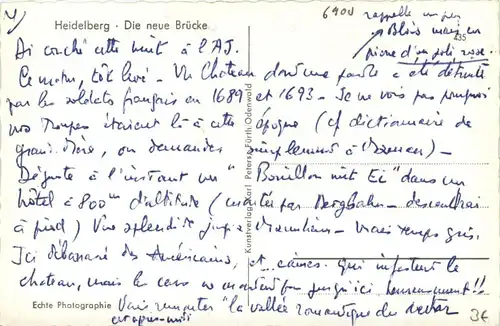 Heidelberg · Die neue Brücke
6900
rappelle un peu
Blois mais en
435
pierre d'un joli rose.
Ai couché cette nuit à l'AJ.
Ce matin, tôt levé - Vu Chateau dont une partie a été détruite
par les soldats français en 1689 et 1693 - Je ne vois pas pourquoi
nos troupes étaient là à cette époque (cf dictionnaire de
grand'mère, ou demandes simplement à
Déguste à l'instant un "Bouillon mit Ei" dans un
hôtel à 800m d'altitude (montée par Bergbahn - descendrai
à pied) Vue splendide jusqu'à Mannheim - Mais temps gris.
Ici débarqué des Américains, et cars qui infestent le
chateau, mais les cars ne montent pas jusqu'ici heureusement!!
Echte Photographie
Vais remonter "la vallée romantique du Neckar
cet après-midi
3€
Kunstverlag Karl Peters · Fürth Odenwald